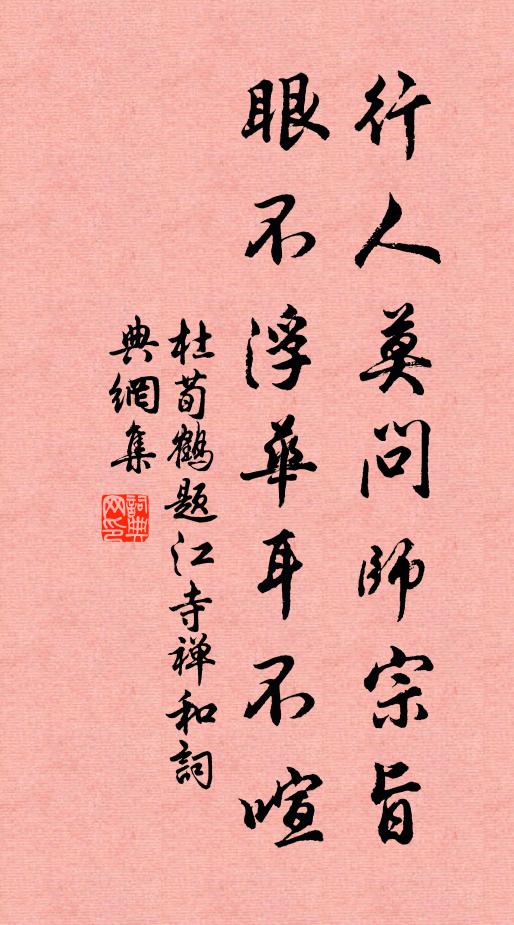 行人莫問師宗旨
眼不浮華耳不喧
杜荀鶴題江寺禅和詞
典網集
詞典網印